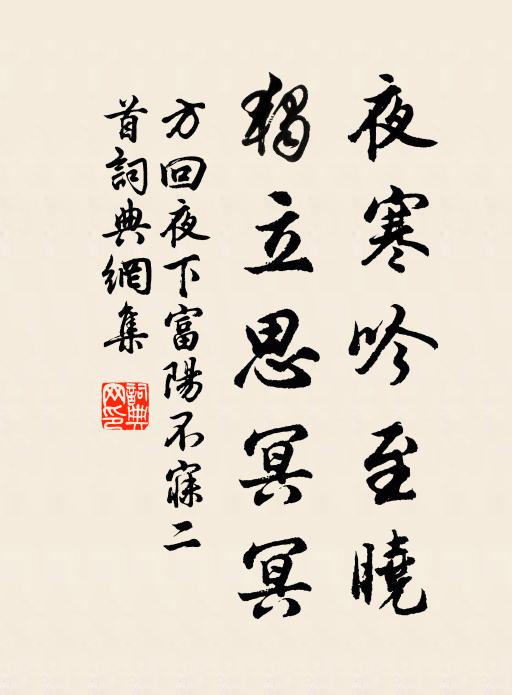 夜寒吟至曉
獨立思冥冥
方回夜下富陽不寐二
首詞典網集
詞典
网印